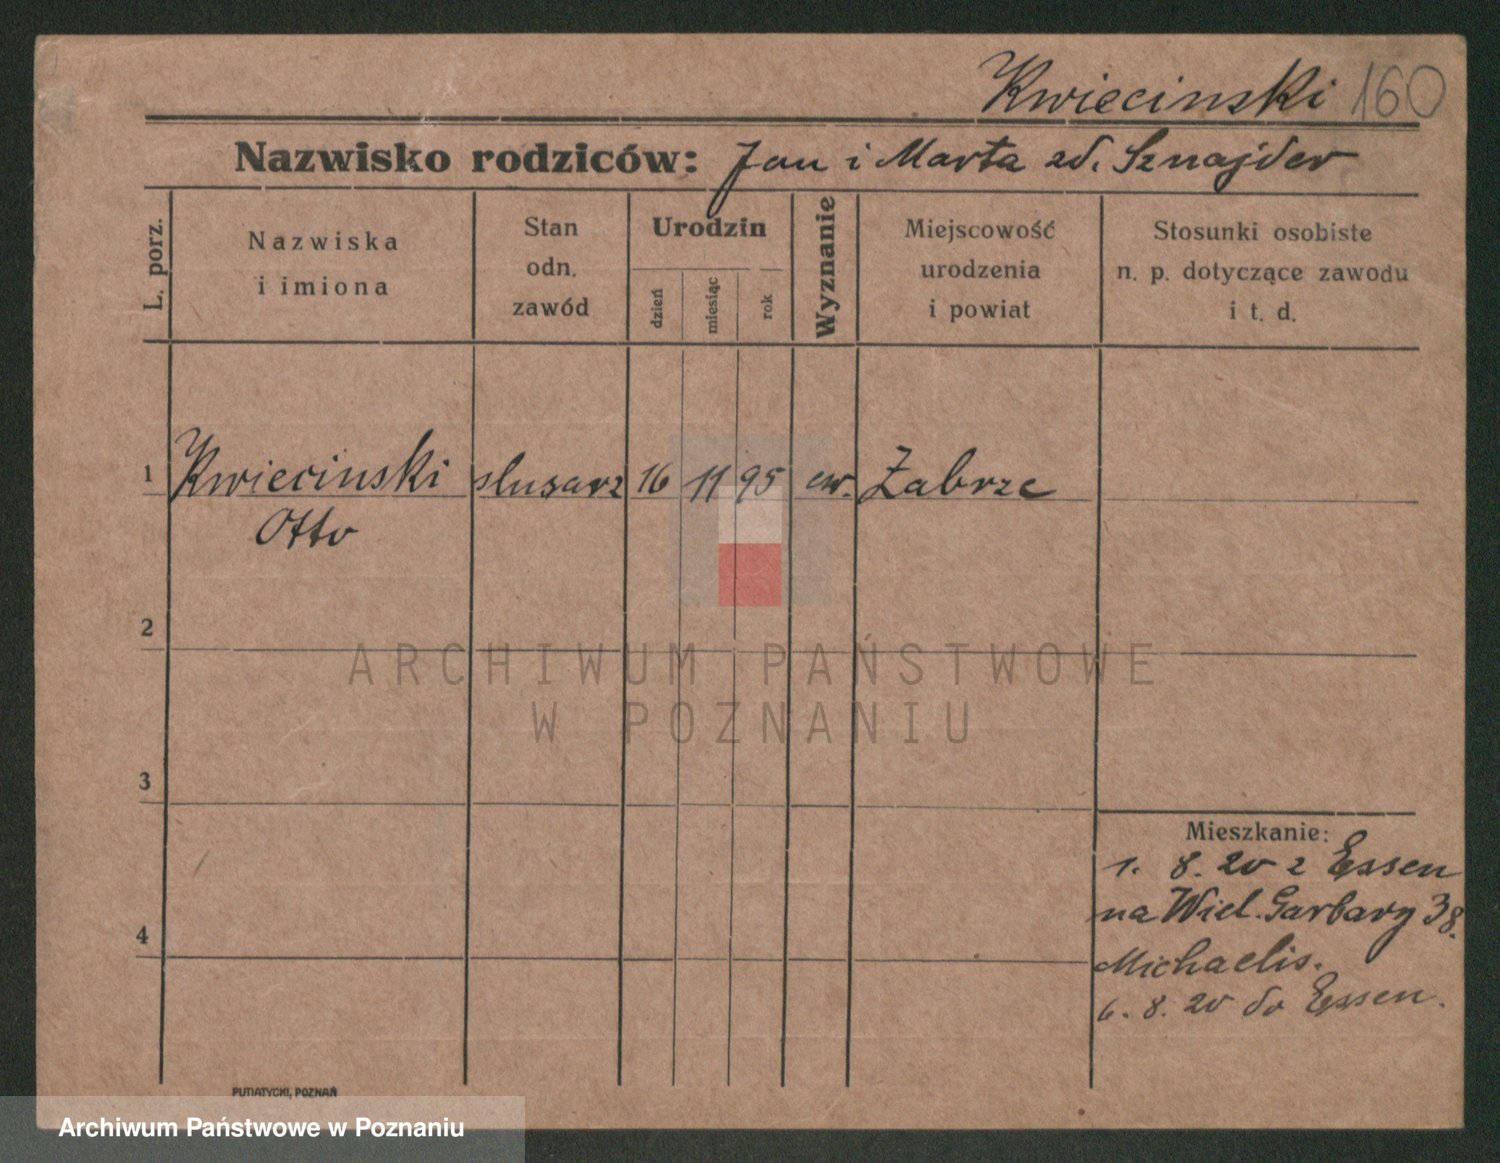 Kwiecinski 160
Nazwisko rodziców: Jan i Marta zd. Sznajder
L. porz.
Nazwiska
i imiona
Stan
odn.
zawód
Urodzin
dzień
miesiąc
rok
Wyznanie
Miejscowość
urodzenia
i powiat
Stosunki osobiste
n. p. dotyczące zawodu
i t. d.
1 Kwiecinski slusarz 16 11 95 ew. Zabrze
Otto
2
3
4
Mieszkanie:
1. 8. 20 z Essen
na Wiel. Garbary 38.
Michaelis.
6. 8. 20 do Essen.
PUTIATYCKI, POZNAŃ
ARCHIWUM PAŃSTWOWE
W POZNANIU
Archiwum Państwowe w Poznaniu